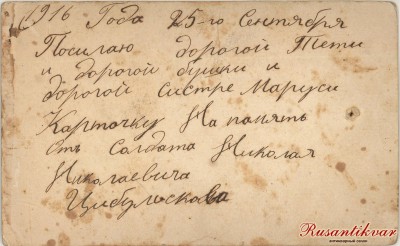 1916 Года 25-го Сентября
Посилаю дорогой Тети
и дорогой бушки и
дорогой систре Маруси
Карточку На память
отъ Солдата Николая
Николаевича
Цибульскова
Rusantikvar